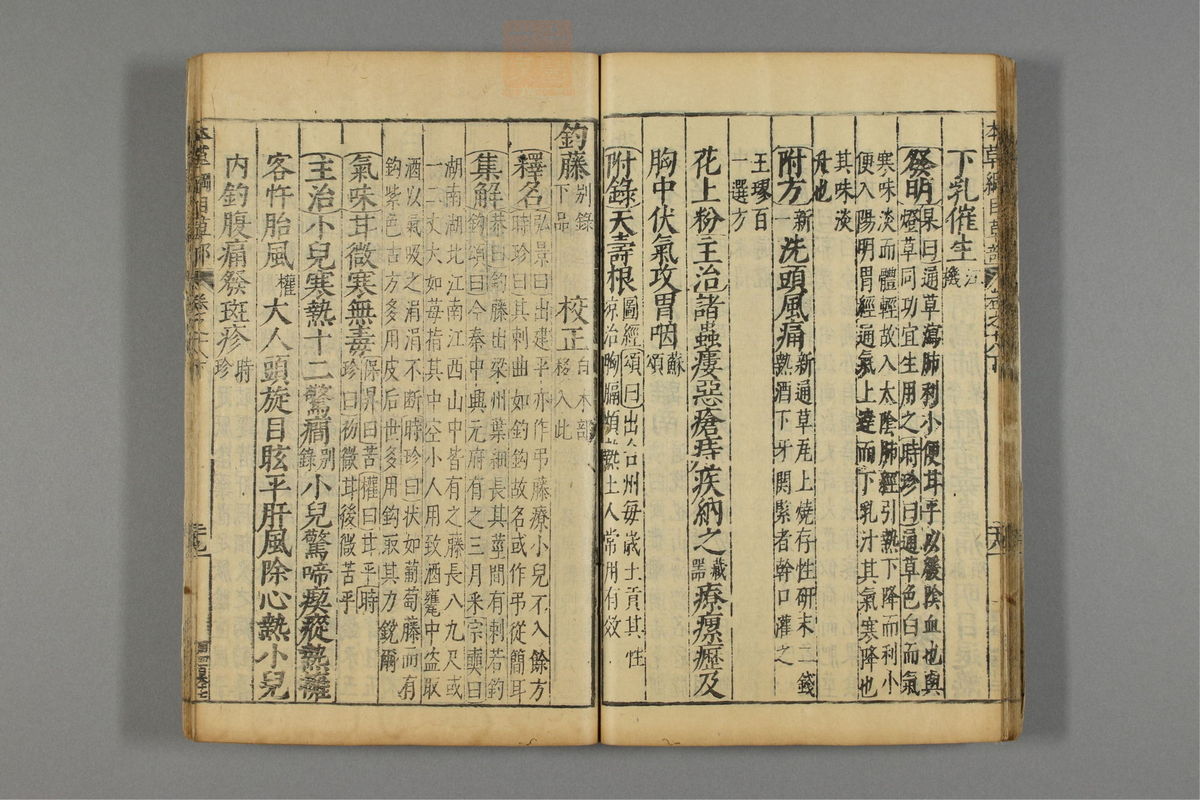 下乳催生汪機
發明杲曰通草瀉肺利小便甘平以緩陰血也與
燈草同功宜生用之時珍曰通草色白而氣
寒味淡而體輕故入太陰肺經引熱下降而利小
便入陽明胃經通氣上達而下乳汁其氣寒降也
其味淡
升也
附方新一洗頭風痛新通草瓦上燒存性研末二錢
熱酒下牙關緊者斡口灌之
王璆百
一選方
花上粉主治諸蟲瘻惡瘡痔疾納之藏器療瘰癧及
胸中伏氣攻胃咽蘇頌
附錄天壽根圖經頌曰出台州每歲土貢其性
涼治胸膈煩熱土人常用有效
鈎藤別錄下品 校正自木部移入此
釋名弘景曰出建平亦作弔藤療小兒不入餘方
時珍曰其刺曲如鈎鈎故名或作弔從簡耳
集解恭曰鈎藤出梁州葉細長其莖間有刺若鈎
頌曰今秦中興元府有之三月采宗奭曰
湖南湖北江南江西山中皆有之藤長八九尺或
一二丈大如毋指其中空小人用致酒甕中盗取
酒以氣吸之涓涓不斷時珍曰狀如葡萄藤而有
鈎紫色古方多用皮后世多用鈎取其力銳爾
氣味甘微寒無毒保昇曰苦權曰甘平時
珍曰初微甘後微苦平
主治小兒寒熱十二驚癎別錄小兒驚啼瘈瘲熱壅
客忤胎風權大人頭旋目眩平肝風除心熱小兒
内釣腹痛發斑疹時珍